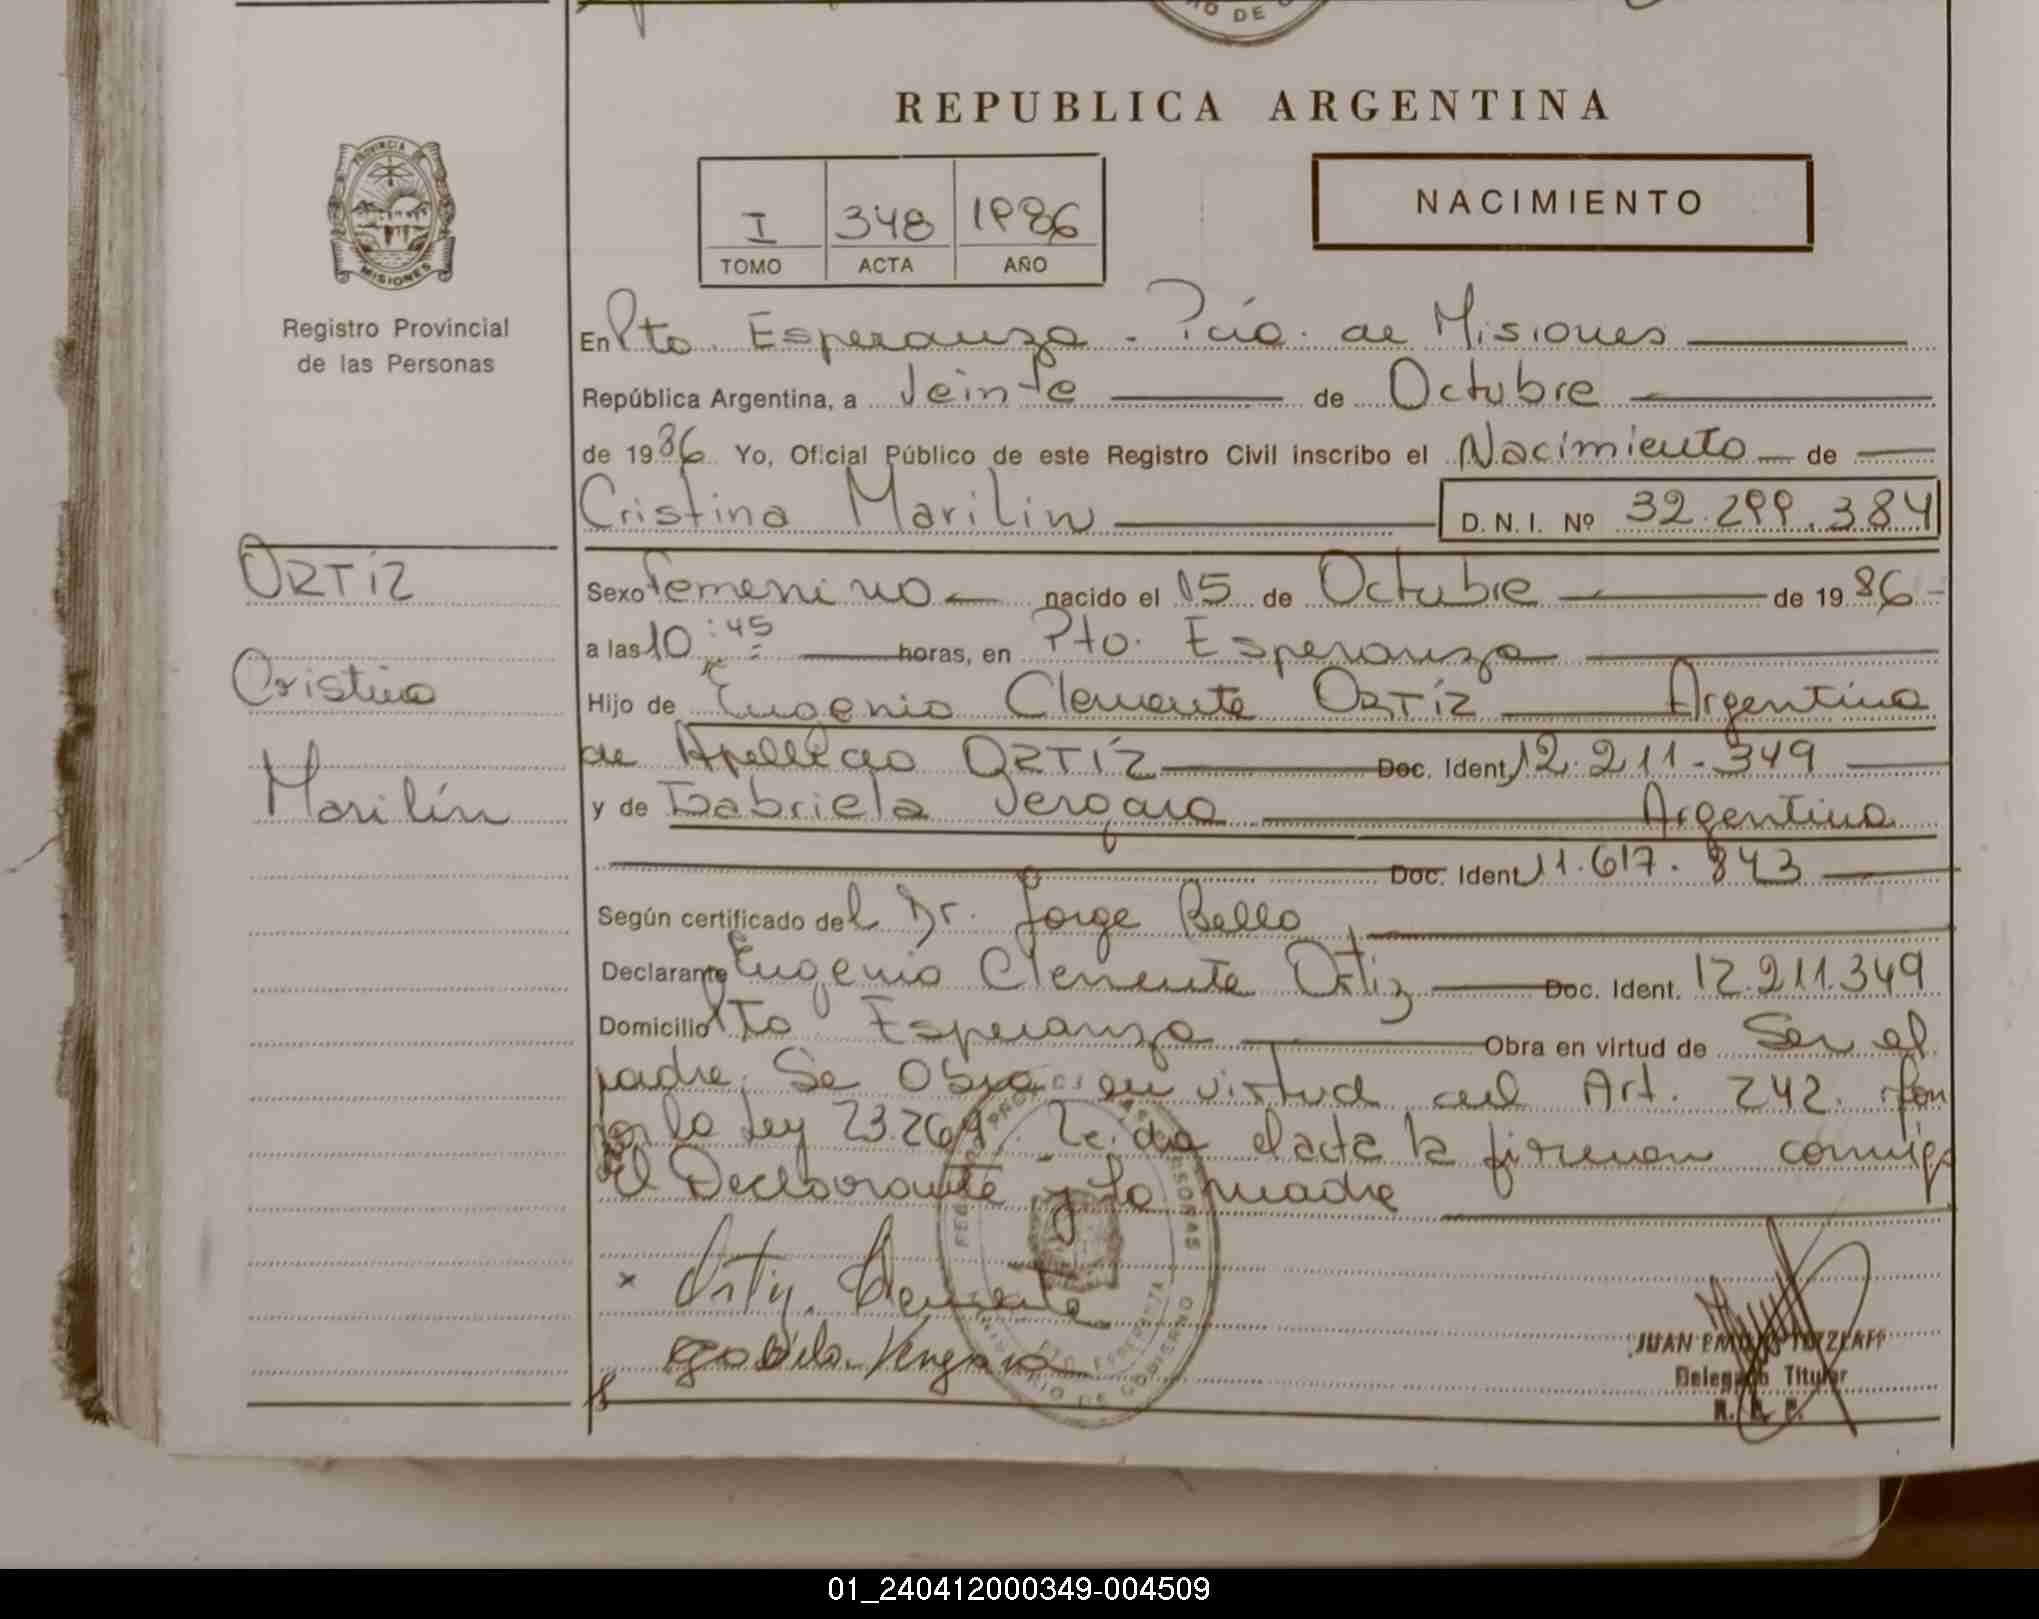 REPUBLICA ARGENTINA
I 348 1986
TOMO ACTA AÑO
NACIMIENTO
PROVINCIA DE MISIONES
Registro Provincial
de las Personas
En Pto. Esperanza - Pcia. de Misiones
República Argentina, a Veinte de Octubre
de 1986 Yo, Oficial Público de este Registro Civil inscribo el Nacimiento de
Cristina Marilin D.N.I. Nº 32.299.384
ORTíZ
Cristina
Marilín
Sexo femenino nacido el 15 de Octubre de 1986
a las 10:45 horas, en Pto. Esperanza
Hijo de Eugenio Clemente ORTíZ Argentina
de Apellido ORTíZ Doc. Ident. 12.211.349
y de Gabriela Vergara Argentina
Doc. Ident. 11.617.843
Según certificado del Dr. Jorge Bello
Declarante Eugenio Clemente Ortiz Doc. Ident. 12.211.349
Domicilio Pto Esperanza Obra en virtud de Ser el
padre. Se Obra en virtud del Art. 242.
por la Ley 23.264. Leida el acta la firman conmigo
El Declarante y la madre
Ortiz. Clemente
Gabriela Vergara
JUAN
Delegado Titular
R. P.
MINISTERIO DE GOBIERNO
PTO. ESPERANZA
01_240412000349-004509